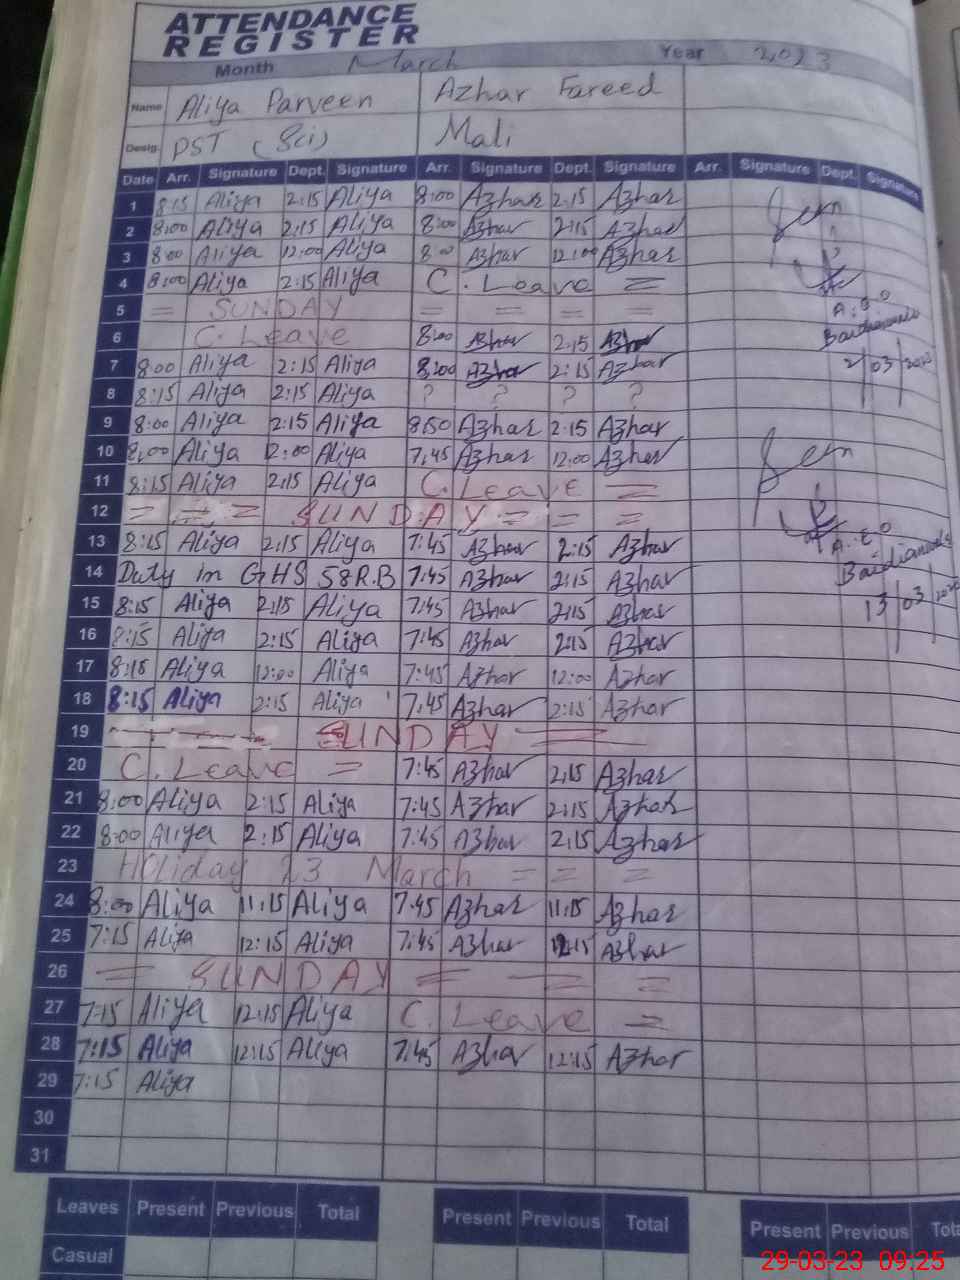 ATTENDANCE
REGISTER
Month March Year 2,023
Name Aliya Parveen Azhar Fareed
Desig. PST (Sci) Mali
Date Arr. Signature Dept. Signature Arr. Signature Dept. Signature Arr. Signature Dept. Signature
1 8:15 Aliya 2:15 Aliya 8:00 Azhar 2:15 Azhar
2 8:00 Aliya 2:15 Aliya 8:00 Azhar 2:15 Azhar
3 8:00 Aliya 12:00 Aliya 8:00 Azhar 12:00 Azhar
4 8:00 Aliya 2:15 Aliya C. Leave =
5 = SUNDAY = = = =
6 C. Leave 8:00 Azhar 2:15 Azhar
7 8:00 Aliya 2:15 Aliya 8:00 Azhar 2:15 Azhar
8 8:15 Aliya 2:15 Aliya ? ? ? ?
9 8:00 Aliya 2:15 Aliya 8:50 Azhar 2:15 Azhar
10 8:00 Aliya 12:00 Aliya 7:45 Azhar 12:00 Azhar
11 8:15 Aliya 2:15 Aliya C. Leave =
12 = = = SUNDAY = = =
13 8:15 Aliya 2:15 Aliya 7:45 Azhar 2:15 Azhar
14 Duty in GHS 58R.B 7:45 Azhar 2:15 Azhar
15 8:15 Aliya 2:15 Aliya 7:45 Azhar 2:15 Azhar
16 8:15 Aliya 2:15 Aliya 7:45 Azhar 2:15 Azhar
17 8:15 Aliya 12:00 Aliya 7:45 Azhar 12:00 Azhar
18 8:15 Aliya 2:15 Aliya 7:45 Azhar 2:15 Azhar
19 SUNDAY =
20 C. Leave = 7:45 Azhar 2:15 Azhar
21 8:00 Aliya 2:15 Aliya 7:45 Azhar 2:15 Azhar
22 8:00 Aliya 2:15 Aliya 7:45 Azhar 2:15 Azhar
23 Holiday 23 March = = =
24 8:00 Aliya 11:15 Aliya 7:45 Azhar 11:15 Azhar
25 7:15 Aliya 12:15 Aliya 7:45 Azhar 12:15 Azhar
26 = SUNDAY = = =
27 7:15 Aliya 12:15 Aliya C. Leave =
28 7:15 Aliya 12:15 Aliya 7:45 Azhar 12:15 Azhar
29 7:15 Aliya
30
31
A.E.O
2/03/2023
A.E.O
13/03/2023
Leaves Present Previous Total Present Previous Total Present Previous
Casual
29-03-23 09:25